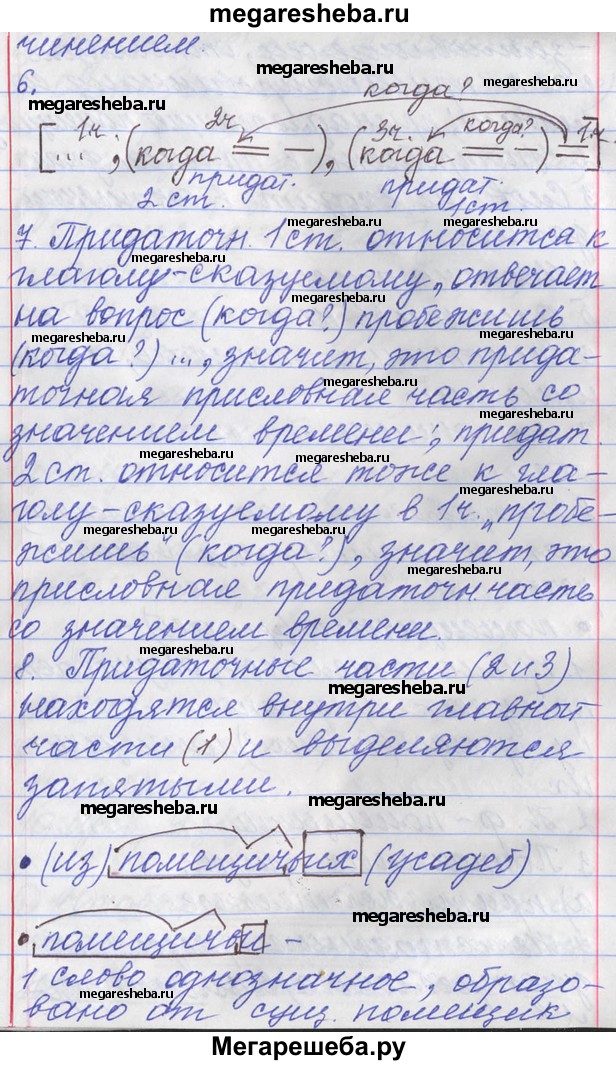 megaresheba.ru
чинением.
megaresheba.ru
6.
megaresheba.ru
когда?
megaresheba.ru
1ч. 2ч. 3ч. когда? 1ч.
[... , (когда = –), (когда = –) =]
придат. придат.
2 ст. 1 ст.
7. Придаточн. 1 ст. относится к
megaresheba.ru megaresheba.ru
глаголу-сказуемому, отвечает
на вопрос (когда?) пробежишь
megaresheba.ru megaresheba.ru
(когда?) ..., значит, это прида-
megaresheba.ru
точная присловная часть со
megaresheba.ru
значением времени; придат.
megaresheba.ru
2 ст. относится тоже к гла-
голу-сказуемому в 1ч. „пробе-
megaresheba.ru megaresheba.ru
жишь" (когда?), значит, это
megaresheba.ru
присловная придаточн часть
со значением времени.
megaresheba.ru
8. Придаточные части (2 и 3)
megaresheba.ru
находятся внутри главной
части (1) и выделяются
запятыми.
megaresheba.ru megaresheba.ru
• (из) помещичьих (усадеб)
megaresheba.ru
• помещичий –
1 слово однозначное, образо-
megaresheba.ru
вано от сущ. помещик
Мегарешеба.ру